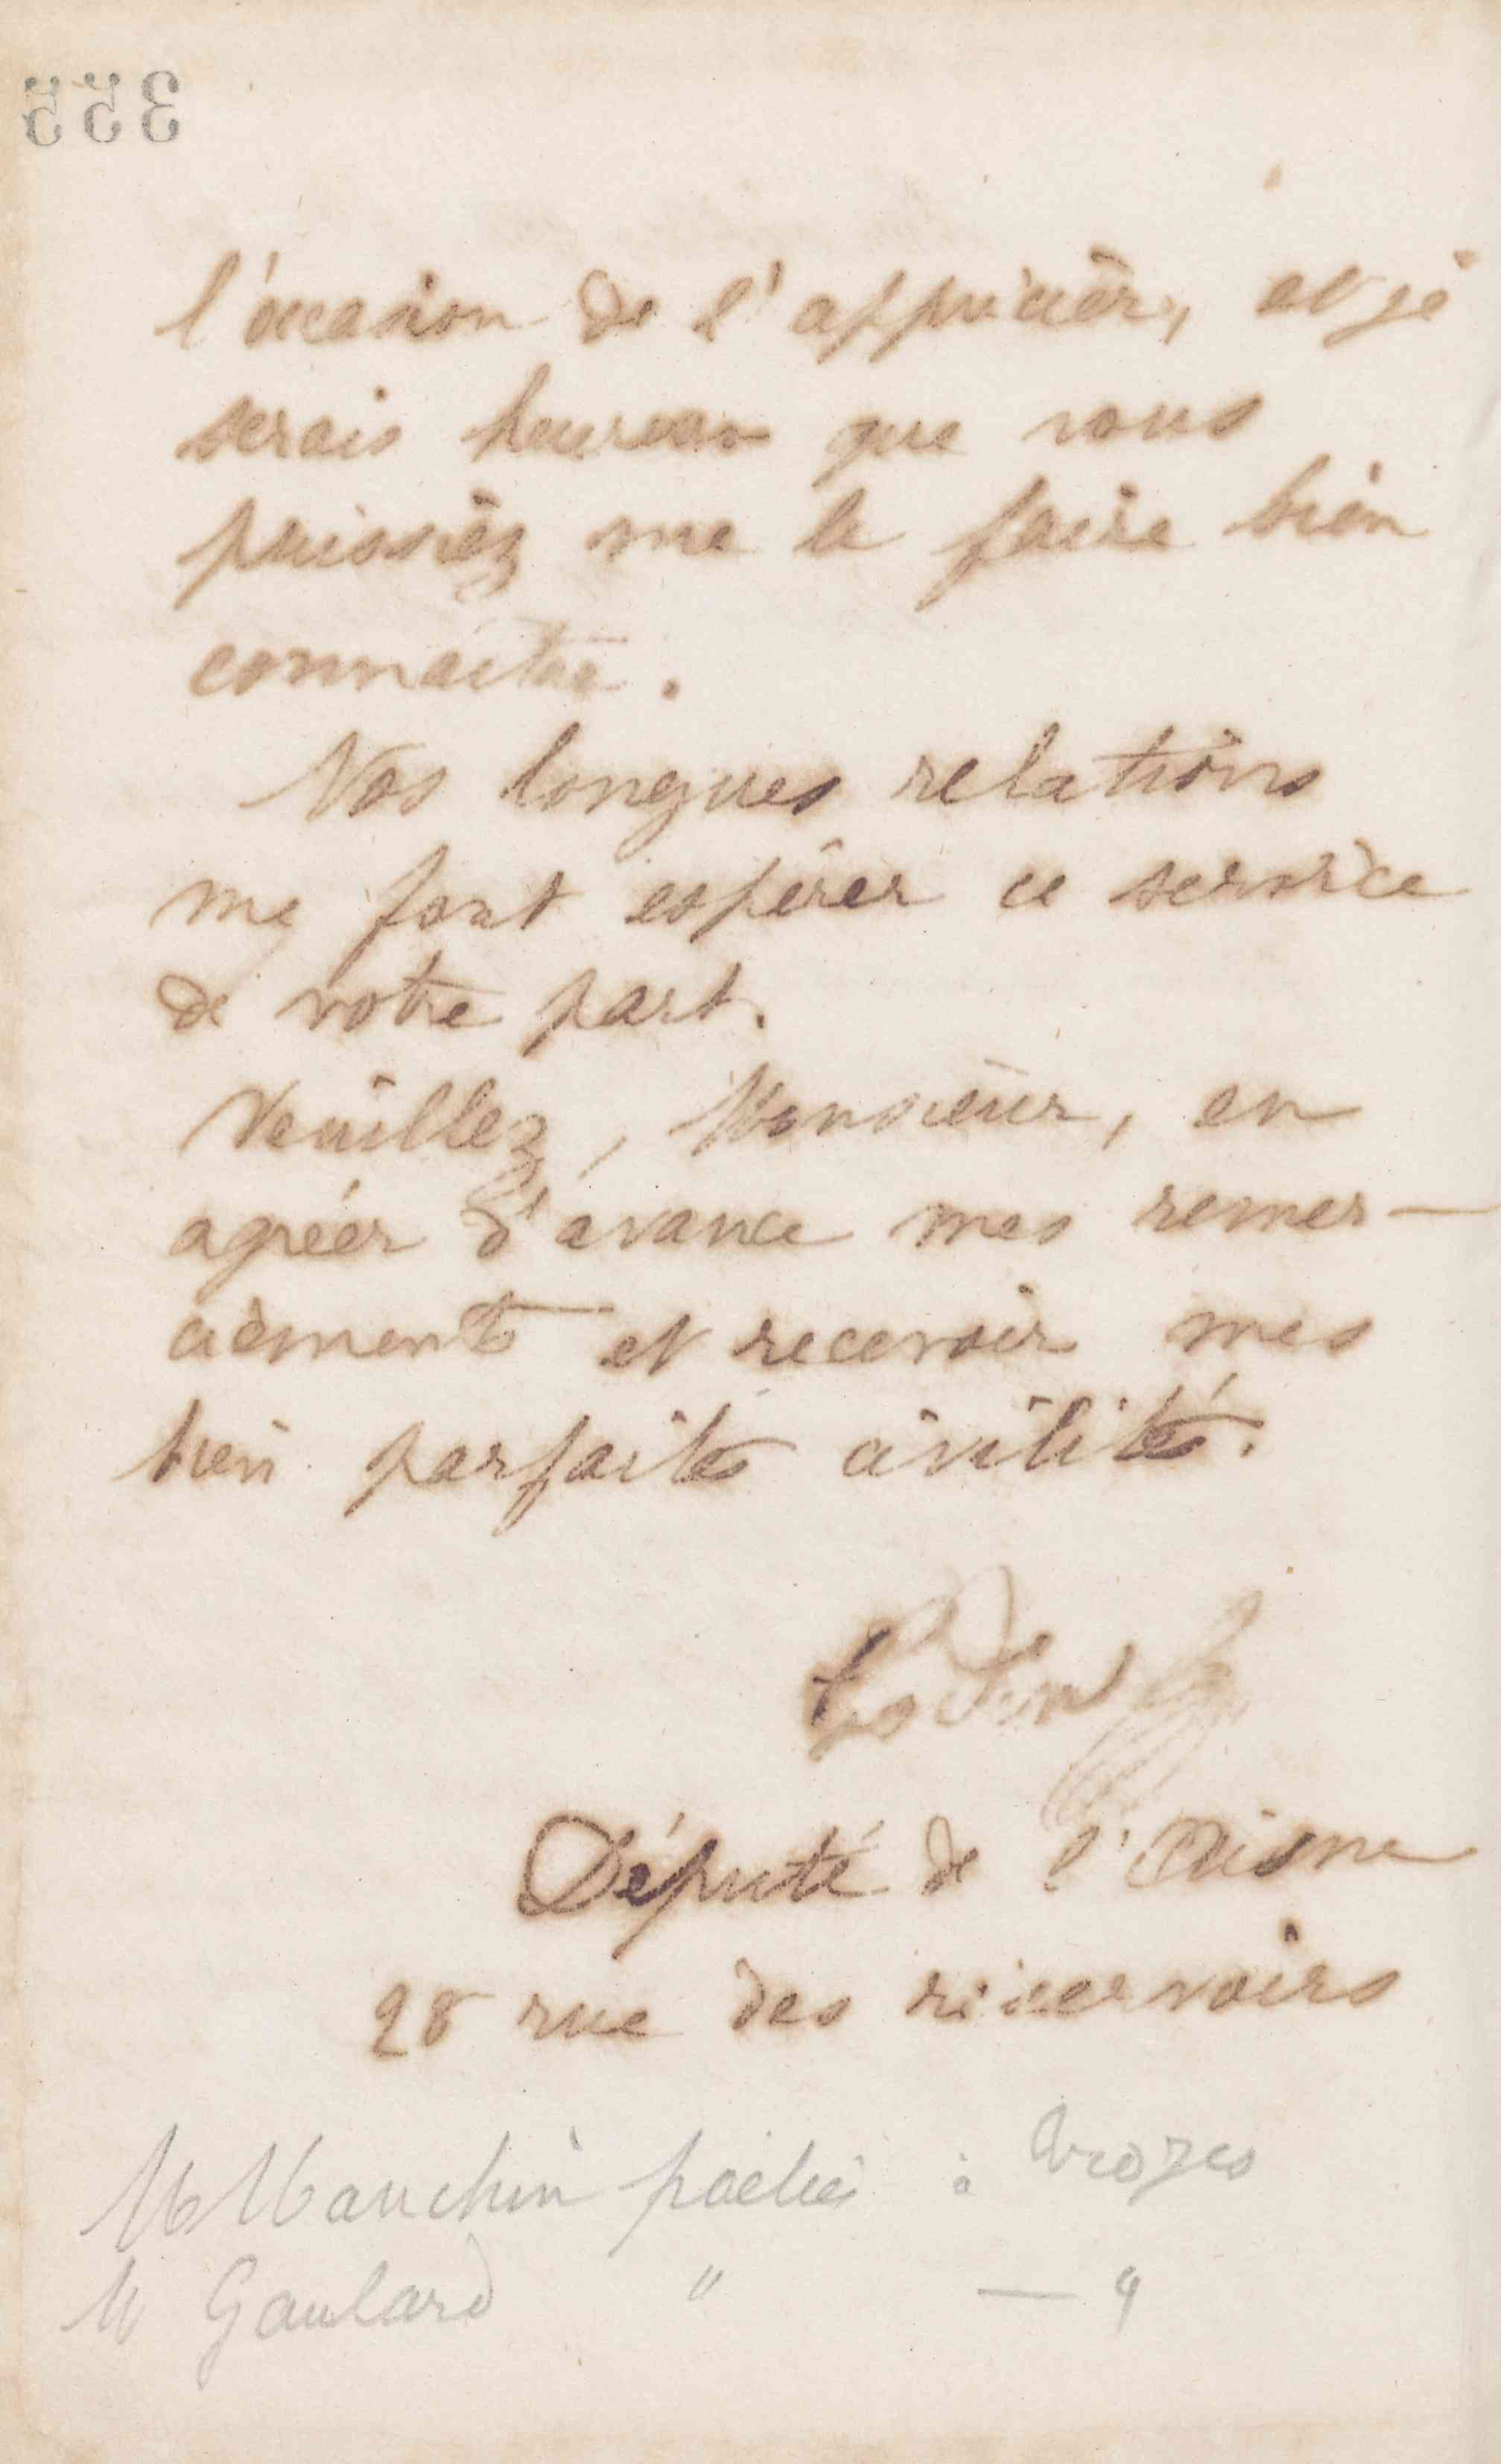 355
l'occasion de l'apprécier, et je
serais heureux que vous
puissiez me la faire bien
connaître.
Nos longues relations
me font espérer ce service
de votre part.
Veuillez, Monsieur, en
agréer d'avance mes remer-
ciements et recevoir mes
bien parfaites civilités.
Godin
Député de l'Aisne
28 rue des réservoirs
M Manchin poelier à Troyes
M Gaulard " — "